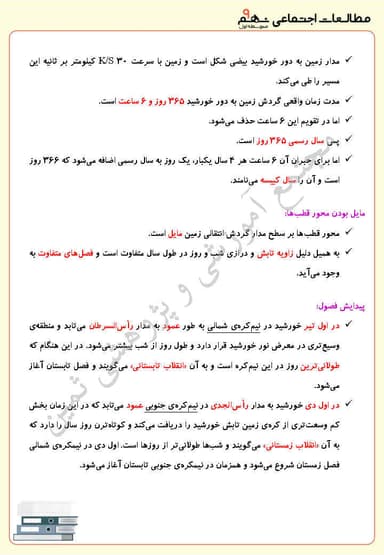 مطالعات اجتماعی نهم
مدار زمین به دور خورشید بیضی شکل است و زمین با سرعت ۳۰ K/S کیلومتر بر ثانیه این
مسیر را طی می‌کند.
مدت زمان واقعی گردش زمین به دور خورشید ۳۶۵ روز و ۶ ساعت است.
اما در تقویم این ۶ ساعت حذف می‌شود.
پس سال رسمی ۳۶۵ روز است.
اما برای جبران آن ۶ ساعت هر ۴ سال یکبار، یک روز به سال رسمی اضافه می‌شود که ۳۶۶ روز
است و آن را سال کبیسه می‌نامند.
مایل بودن محور قطب‌ها:
محور قطب‌ها بر سطح مدار گردش انتقالی زمین مایل است.
به همیل دلیل زاویه تابش و درازی شب و روز در طول سال متفاوت است و فصل‌های متفاوت به
وجود می‌آید.
پیدایش فصول:
در اول تیر خورشید در نیم‌کره‌ی شمالی به طور عمود به مدار رأس‌السرطان می‌تابد و منطقه‌ی
وسیع‌تری در معرض نور خورشید قرار دارد و طول روز از شب بیشتر می‌شود. در این هنگام که
طولانی‌ترین روز در این نیم‌کره است و به آن «انقلاب تابستانی» می‌گویند و فصل تابستان آغاز
می‌شود.
در اول دی خورشید به مدار رأس‌الجدی در نیم‌کره‌ی جنوبی عمود می‌تابد که در این زمان بخش
کم وسعت‌تری از کره‌ی زمین تابش خورشید را دریافت می‌کند و کوتاه‌ترن روز سال را دارد که
به آن «انقلاب زمستانی» می‌گویند و شب‌ها طولانی‌تر از روزها است. اول دی در نیمکره‌ی شمالی
فصل زمستان شروع می‌شود و همزمان در نیمکره‌ی جنوبی تابستان آغاز می‌شود.
مجتمع آموزشی و پژوهشی ثمین